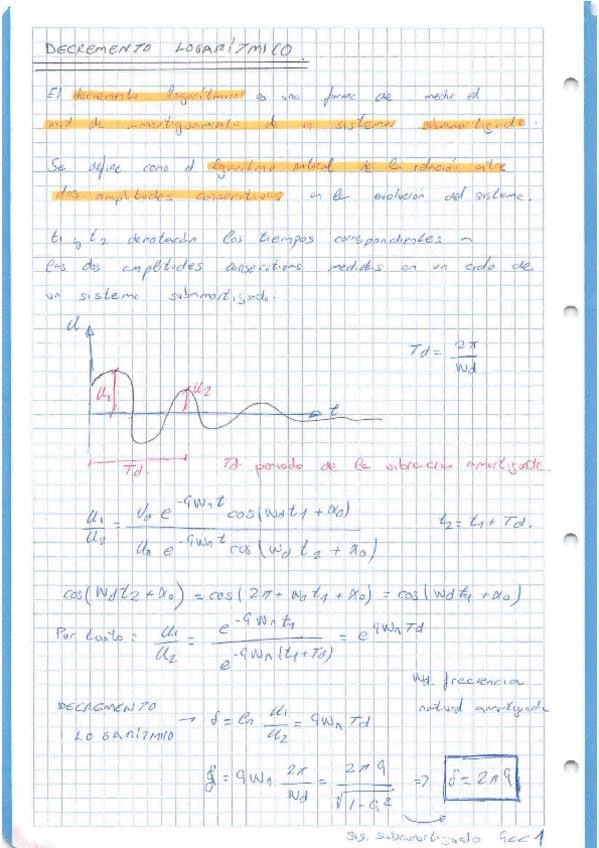 DECREMENTO LOGARÍTMICO.
El decremento logarítmico es una forma de medir el
de amortiguamiento de un sistema subamortiguado.
Se define como el logaritmo natural de la relación entre
dos amplitudes consecutivas en la evolución del sistema.
t1 y t2 denotarán los tiempos correspondientes a
las dos amplitudes consecutivas medidas en un ciclo de
un sistema subamortiguado.
U
Td = 2π / Wd
U1 U2 t
Td. Td: periodo de la vibracion amortiguada
U1/U2 = (U0 e^-ςWnt cos(Wdt1 + α0)) / (U0 e^-ςWnt cos(Wd t2 + α0)) t2 = t1 + Td.
cos(Wdt2 + α0) = cos(2π + Wdt1 + α0) = cos(Wdt1 + α0)
Por tanto: U1/U2 = e^-ςWnt1 / e^-ςWn(t1+Td) = e^ςWnTd
Wd: frecuencia
natural amortiguada
DECREMENTO
LOGARÍTMICO → δ = ln U1/U2 = ςWn Td
δ = ςWn 2π/Wd = 2πς / √(1-ς²) => δ = 2πς
Sis. subamortiguado ς<<1